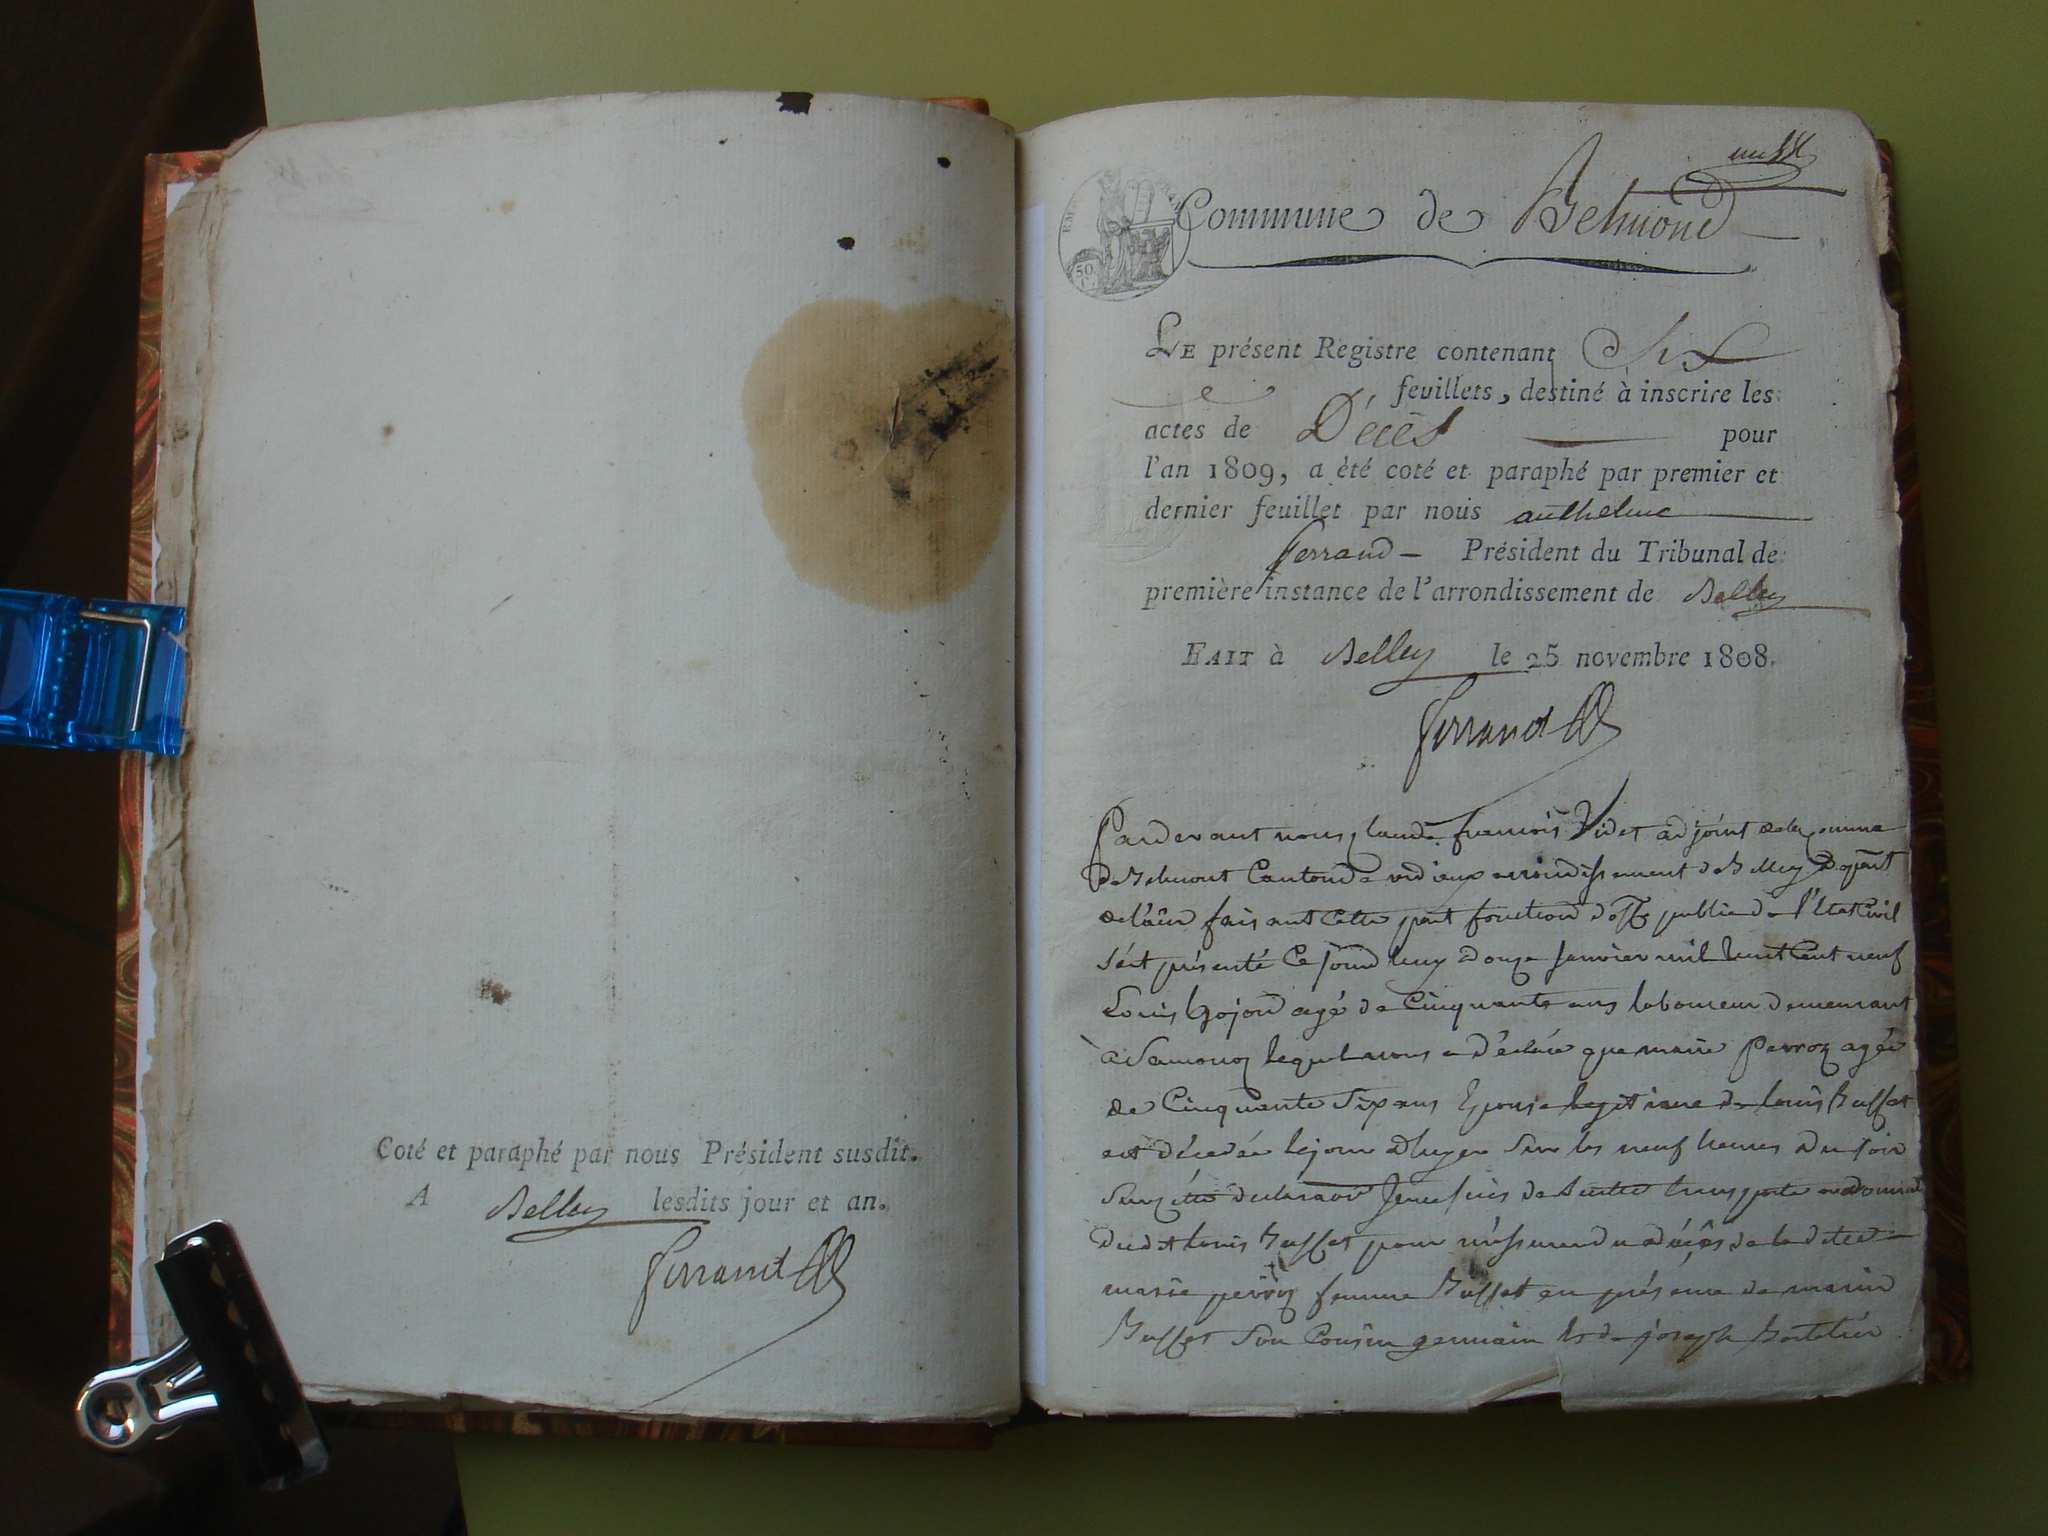 Coté et paraphé par nous Président susdit.
A Belley lesdits jour et an.
Ferrand
Commune de Belmond
50 C.
LE présent Registre contenant Six
feuillets, destiné à inscrire les
actes de Décès pour
l'an 1809, a été coté et paraphé par premier et
dernier feuillet par nous anthelme
ferrand Président du Tribunal de
première instance de l'arrondissement de Belley
FAIT à Belley le 25 novembre 1808.
Ferrand
Pardevant nous Claude françois Videt adjoint de la Comune
de Belmont Canton de virieux arrondissement de Belley Depart
de l'ain faisant Cette part fonction d'off publie de l'Etat Civil
s'est présenté Ce jourd huy douze Janvier mil huit Cent neuf
Louis gojon agé de Cinquante ans laboureur demeurant
a Samonoz lequel nous a déclaré que marie perroz agée
de Cinquante Six ans Epouse legitime de louis Buffet
est décédée le jour d'hyer Sur les neuf heures du soir
Sur cette declaraon Je me suis de Suitte transporté au domicil
dudit louis Buffet pour m'assurer du décès de la dite
marie perroz femme Buffet en présence de marin
Buffet Son Cousin germain Et de joseph Bertetier